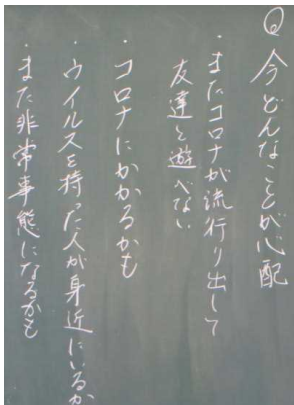 Q 今どんなことが心配
・またコロナが流行り出して
友達と遊べない
・コロナにかかるかも
・ウイルスを持った人が身近にいるか
・また非常事態になるかも